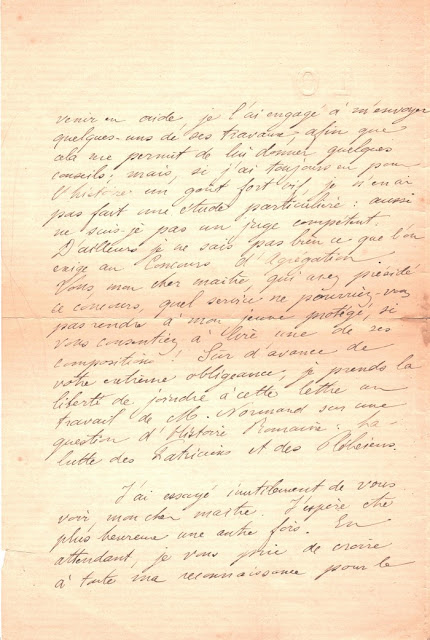 venir en aide, je l'ai engagé à m'envoyer
quelques-uns de ses travaux, afin que
cela me permit de lui donner quelques
conseils; mais, si j'ai toujours eu pour
l'histoire un goût fort vif, je n'en ai
pas fait une étude particulière: aussi
ne suis-je pas un juge compétent.
D'ailleurs je ne sais pas bien ce que l'on
exige au Concours d'Agrégation.
Vous mon cher maître, qui avez présidé
ce concours, quel service ne pourriez-vous
pas rendre à mon jeune protégé, si
vous consentiez à lire une de ses
compositions! Sûr d'avance de
votre extrême obligeance, je prends la
liberté de joindre à cette lettre un
travail de M. Normand sur une
question d'Histoire Romaine: La
lutte des Patriciens et des Plébéiens.
J'ai essayé inutilement de vous
voir, mon cher maître. J'espère être
plus heureuse une autre fois. En
attendant, je vous prie de croire
à toute ma reconnaissance pour le